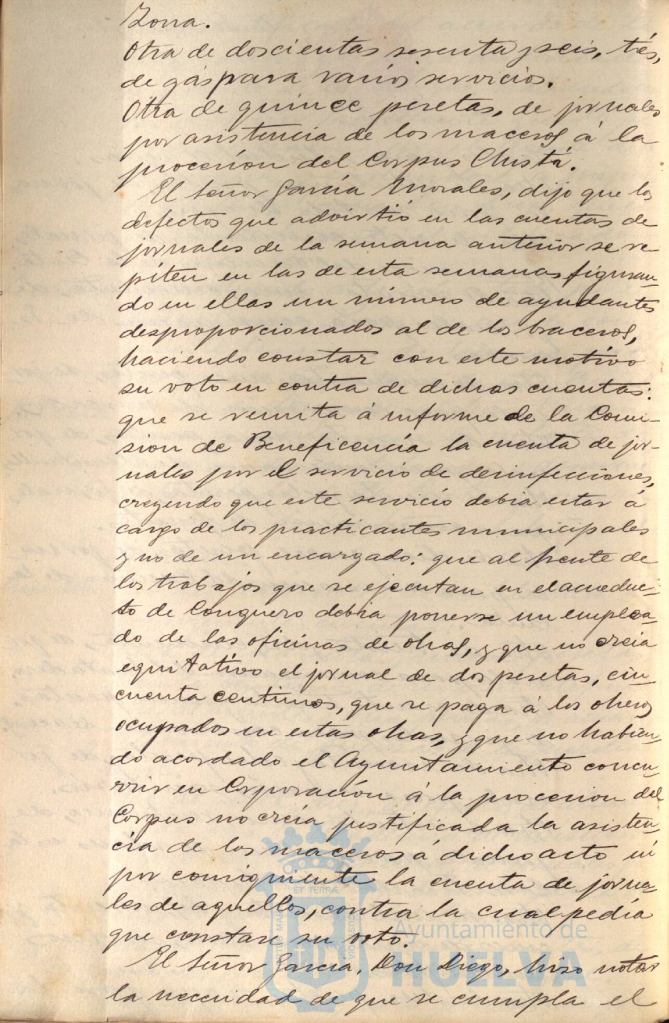 Zona.
Otra de doscientas sesenta y seis, tés,
de gas para varios servicios.
Otra de quince pesetas, de jornales
por asistencia de los maceros á la
procesion del Corpus Christi.
El Señor García Morales, dijo que los
defectos que advirtió en las cuentas de
jornales de la semana anterior se re-
piten en las de esta semanas, figuran-
do en ellas un número de ayudantes
desproporcionados al de los braceros,
haciendo constar con este motivo
su voto en contra de dichas cuentas:
que se remita á informe de la Comi-
sion de Beneficencia la cuenta de jor-
nales por el servicio de desinfecciones,
creyendo que este servicio debia estar á
cargo de los practicantes municipales
y no de un encargado: que al frente de
los trabajos que se ejecutan en el acueduc-
to de Conquero debia ponerse un emplea-
do de las oficinas de obras, y que no creia
equitativo el jornal de dos pesetas, cin-
cuenta centimos, que se paga á los obreros
ocupados en estas obras, y que no habien-
do acordado el Ayuntamiento concu-
rrir en Corporación á la procesion del
Corpus no creía justificada la asisten-
cia de los maceros á dicho acto ni
por consiguiente la cuenta de jorna-
les de aquellos, contra la cual pedía
que constase su voto.
El Señor García, Don Diego, hizo notar
la necesidad de que se cumpla el
Ayuntamiento de
HUELVA